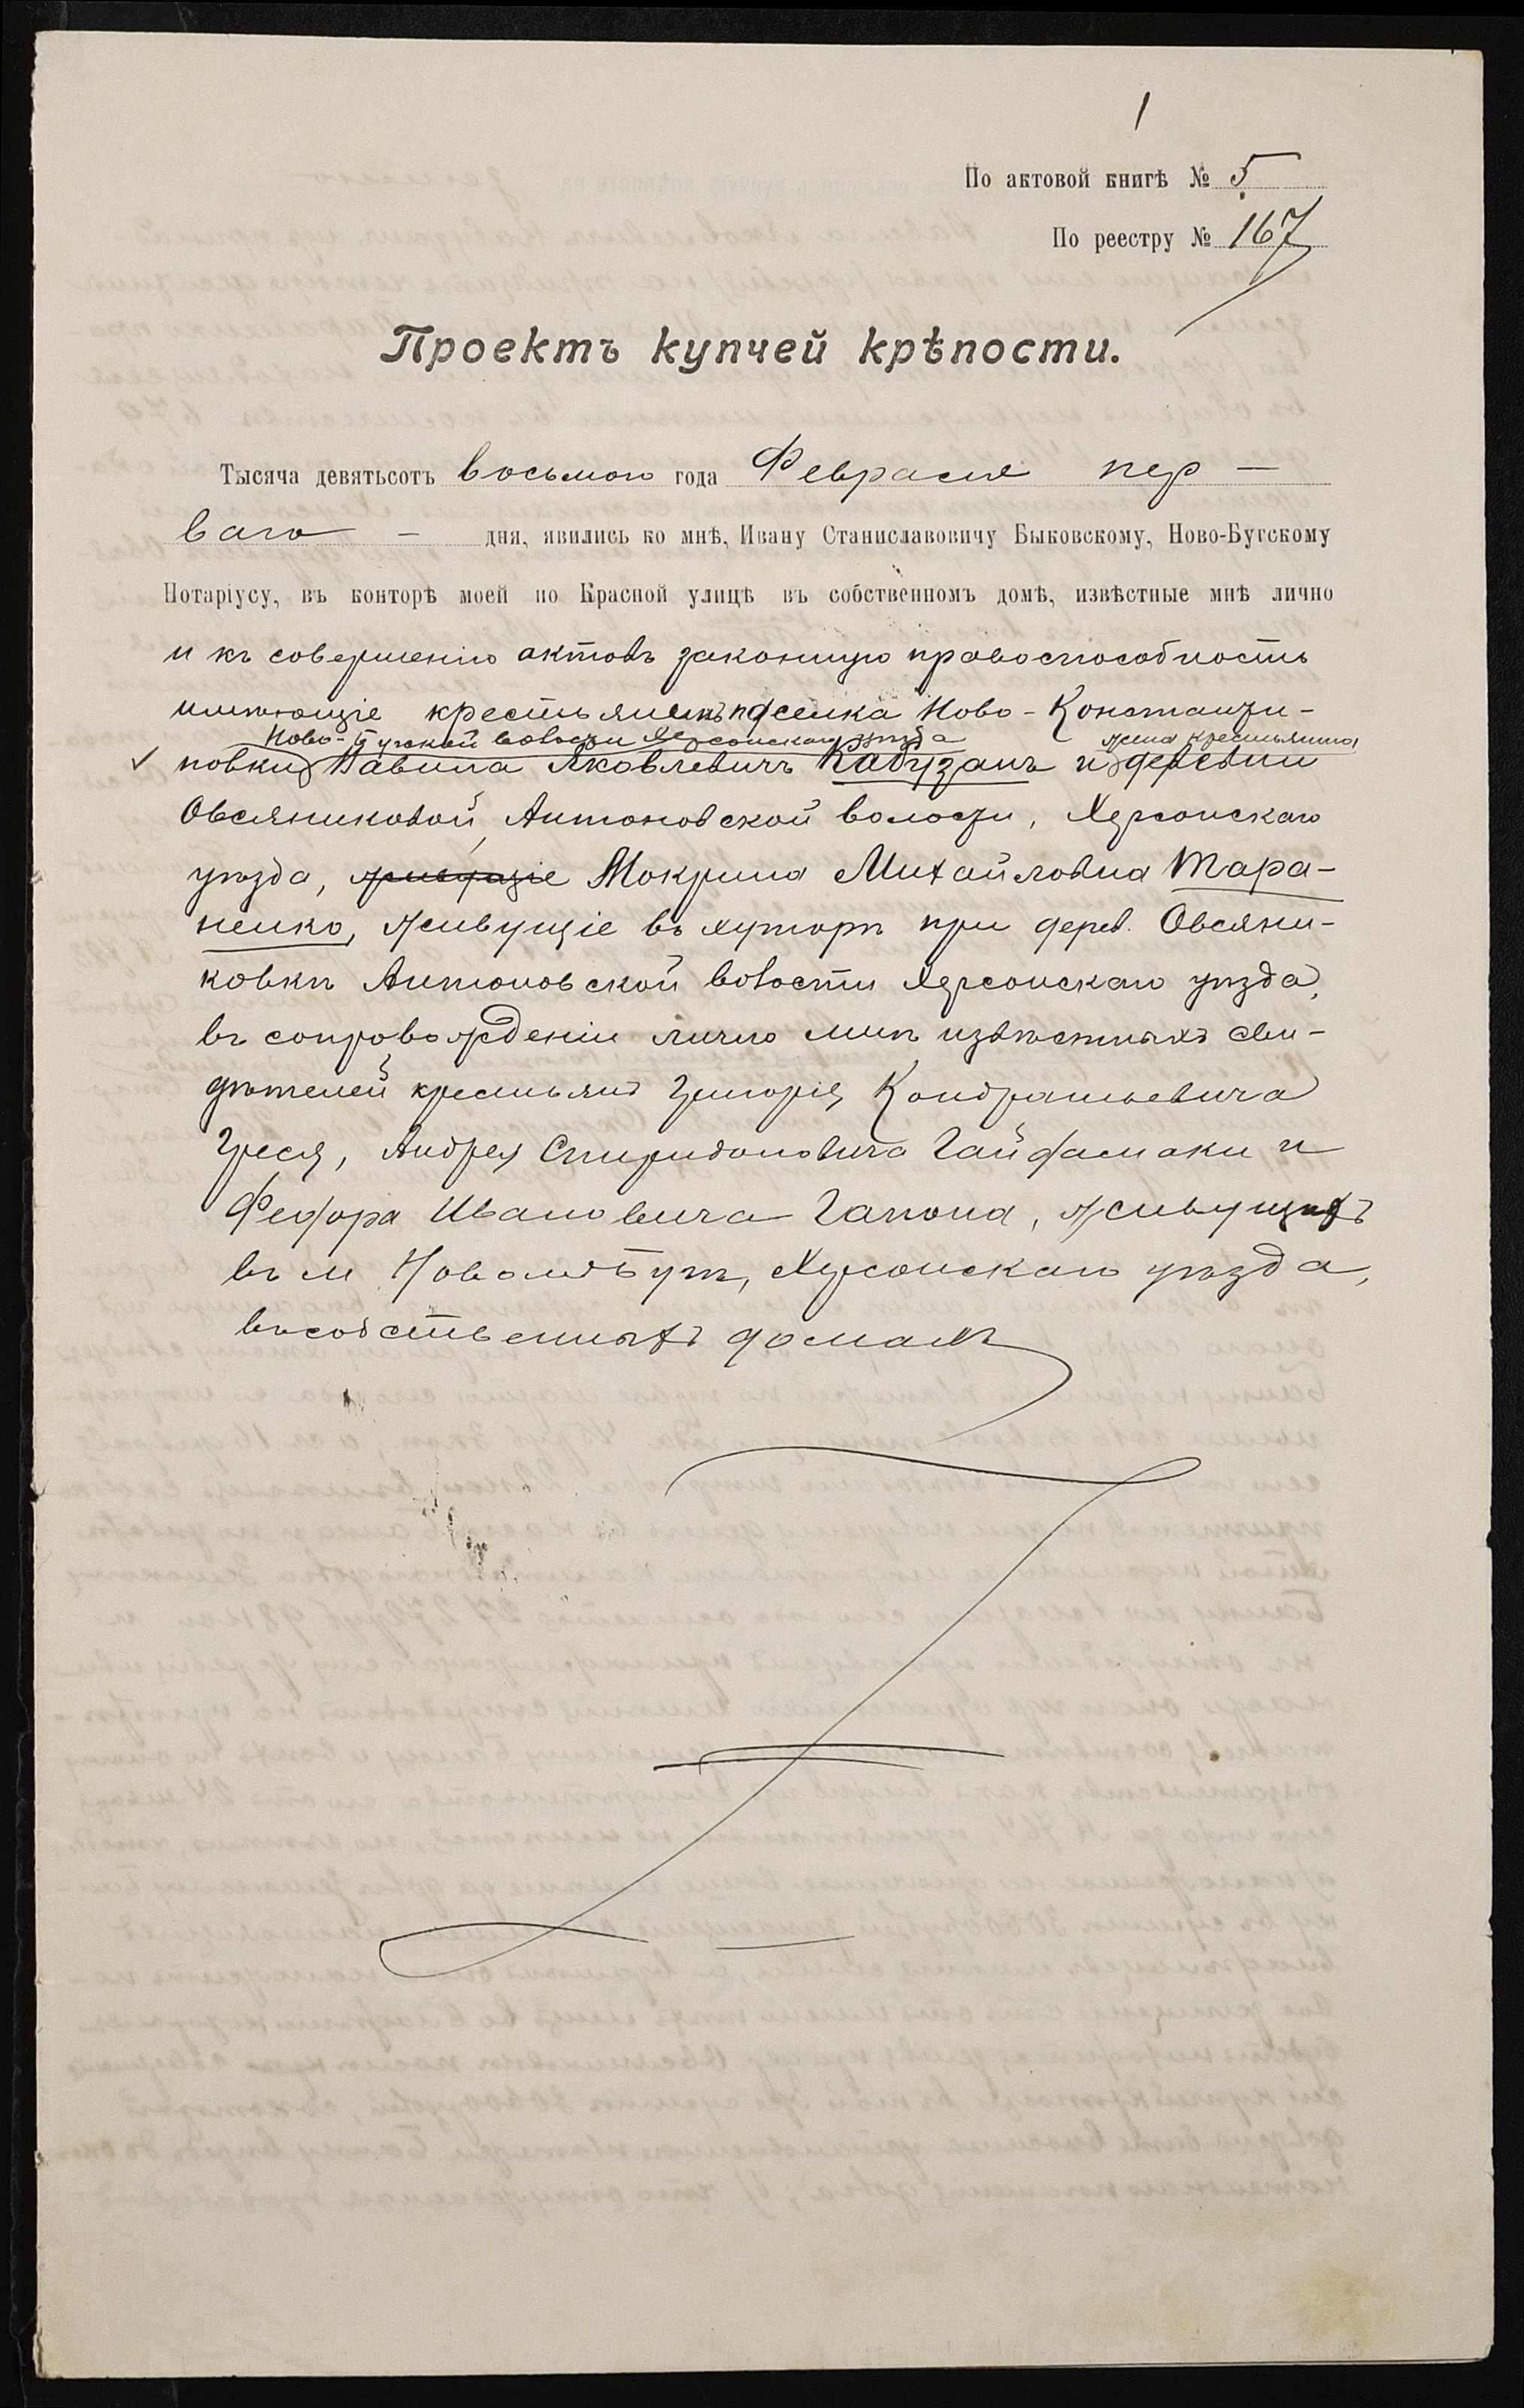 1
По актовой книгѣ № 5.
По реестру № 167
Проектъ купчей крѣпости.
Тысяча девятьсотъ восьмого года Февраля пер —
ваго — дня, явились ко мнѣ, Ивану Станиславовичу Быковскому, Ново-Бугскому
Нотаріусу, въ конторѣ моей по Красной улицѣ въ собственномъ домѣ, извѣстные мнѣ лично
и къ совершенію актовъ законную правоспособность
имѣющіе крестьянинъ поселка Ново-Константи-
Ново-Бугской волости Херсонскаго уѣзда жена крестьянина
новки Вавила Яковлевичъ Кабузанъ и деревни
Овсяниковой, Антоновской волости, Херсонскаго
уѣзда, живущіе Мокрина Михайловна Тара-
ненко, живущіе въ хуторѣ при дерев. Овсяни-
ковкѣ Антоновской волости Херсонскаго уѣзда,
въ сопровожденіи лично мнѣ извѣстныхъ сви-
дѣтелей крестьянъ Григорія Кондратьевича
Греся, Андрея Спиридоновича Гайдамаки и
Федора Ивановича Гапона, живущихъ
въ м. Новомъ Бугѣ, Херсонскаго уѣзда,
въ собственныхъ домахъ